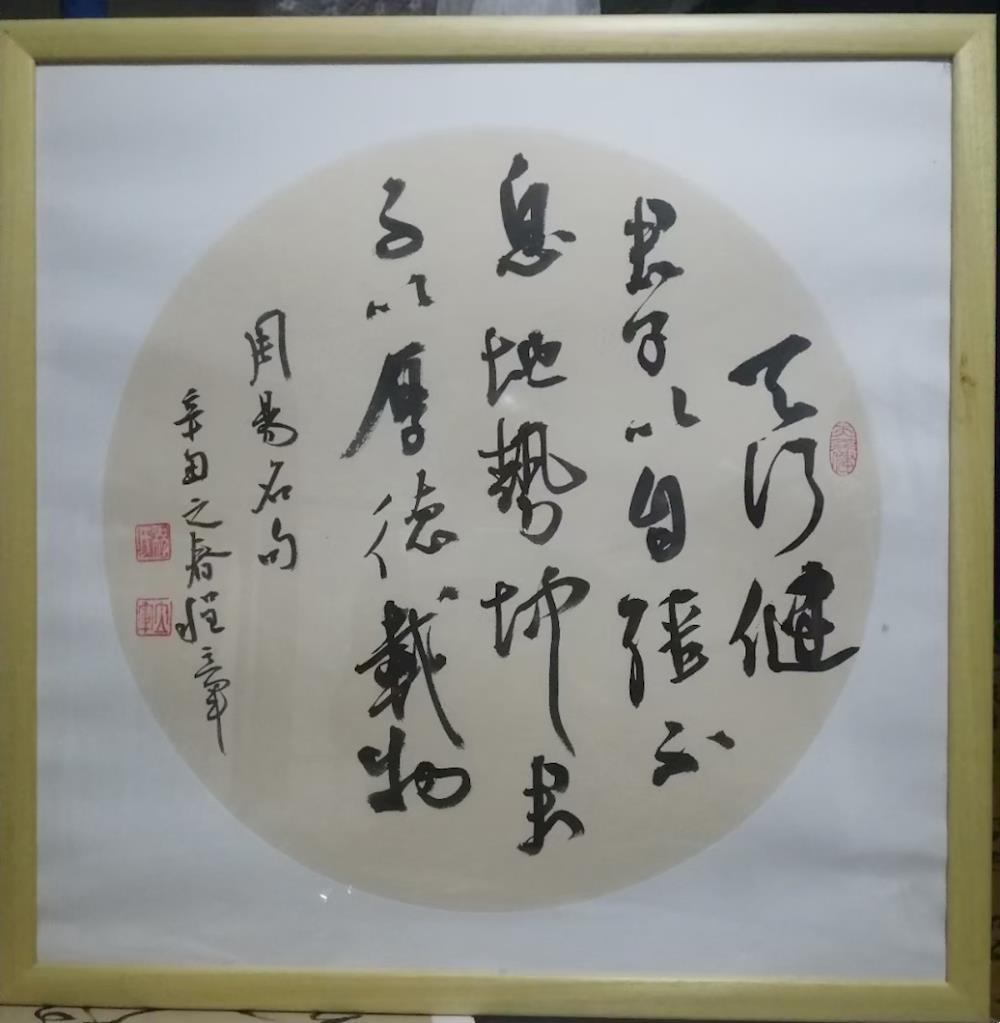 天行健
君子以自强不
息地势坤君
子以厚德载物
周易名句
辛丑之春